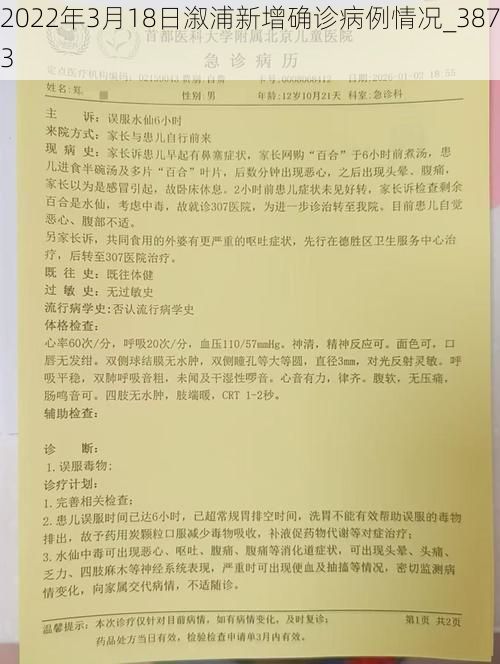 2022年3月18日溆浦新增确诊病例情况_387
3
首都医科大学附属北京儿童医院
急诊病历
定点医疗机构编码：02150043
2026-01-02 18:55
姓名：郑
性别：男
年龄：12岁10月21天
科室：急诊科
主 诉：误服水仙6小时
来院方式：家长与患儿自行前来
现 病 史：家长诉患儿早起有鼻塞症状，家长网购“百合”于6小时前煮汤，患
儿进食半碗汤及多片“百合”叶片，后数分钟出现恶心，之后出现头晕、腹痛，
家长以为是感冒引起，故卧床休息。2小时前患儿症状未见好转，家长诉检查剩余
百合是水仙，考虑中毒，故就诊307医院，为进一步诊治转至我院。目前患儿自觉
恶心、腹部不适。
另家长诉，共同食用的外婆有更严重的呕吐症状，先行在德胜区卫生服务中心治
疗，后转至307医院治疗。
既 往 史：既往体健
过 敏 史：无过敏史
流行病学史：否认流行病学史
体格检查：
心率60次/分，呼吸20次/分，血压110/57mmHg。神清，精神反应可。面色可。口
唇无发绀。双侧球结膜无水肿，双侧瞳孔等大等圆，直径3mm，对光反射灵敏。呼
吸平稳，双肺呼吸音粗，未闻及干湿性啰音。心音有力，律齐。腹软，无压痛，
肠鸣音可。四肢无水肿，肢端暖，CRT 1-2秒。
辅助检查：
诊 断：
1.误服毒物；
诊疗计划：
1.完善相关检查；
2.患儿误服时间已达6小时，已超常规胃排空时间，洗胃不能有效帮助误服的毒物
排出，故予药用炭颗粒口服减少毒物吸收，补液促药物代谢等对症治疗；
3.水仙中毒可出现恶心、呕吐、腹痛、腹痛等消化道症状，可出现头晕、头痛、
乏力、四肢麻木等神经系统表现，严重时可出现便血及抽搐等情况，密切监测病
情变化，向家属交代病情，不适随诊。
温馨提示：本次诊疗仅针对目前病情，如有病情变化，及时复诊；
药品处方当日有效，检验检查申请单3月内有效。
第1页 共2页